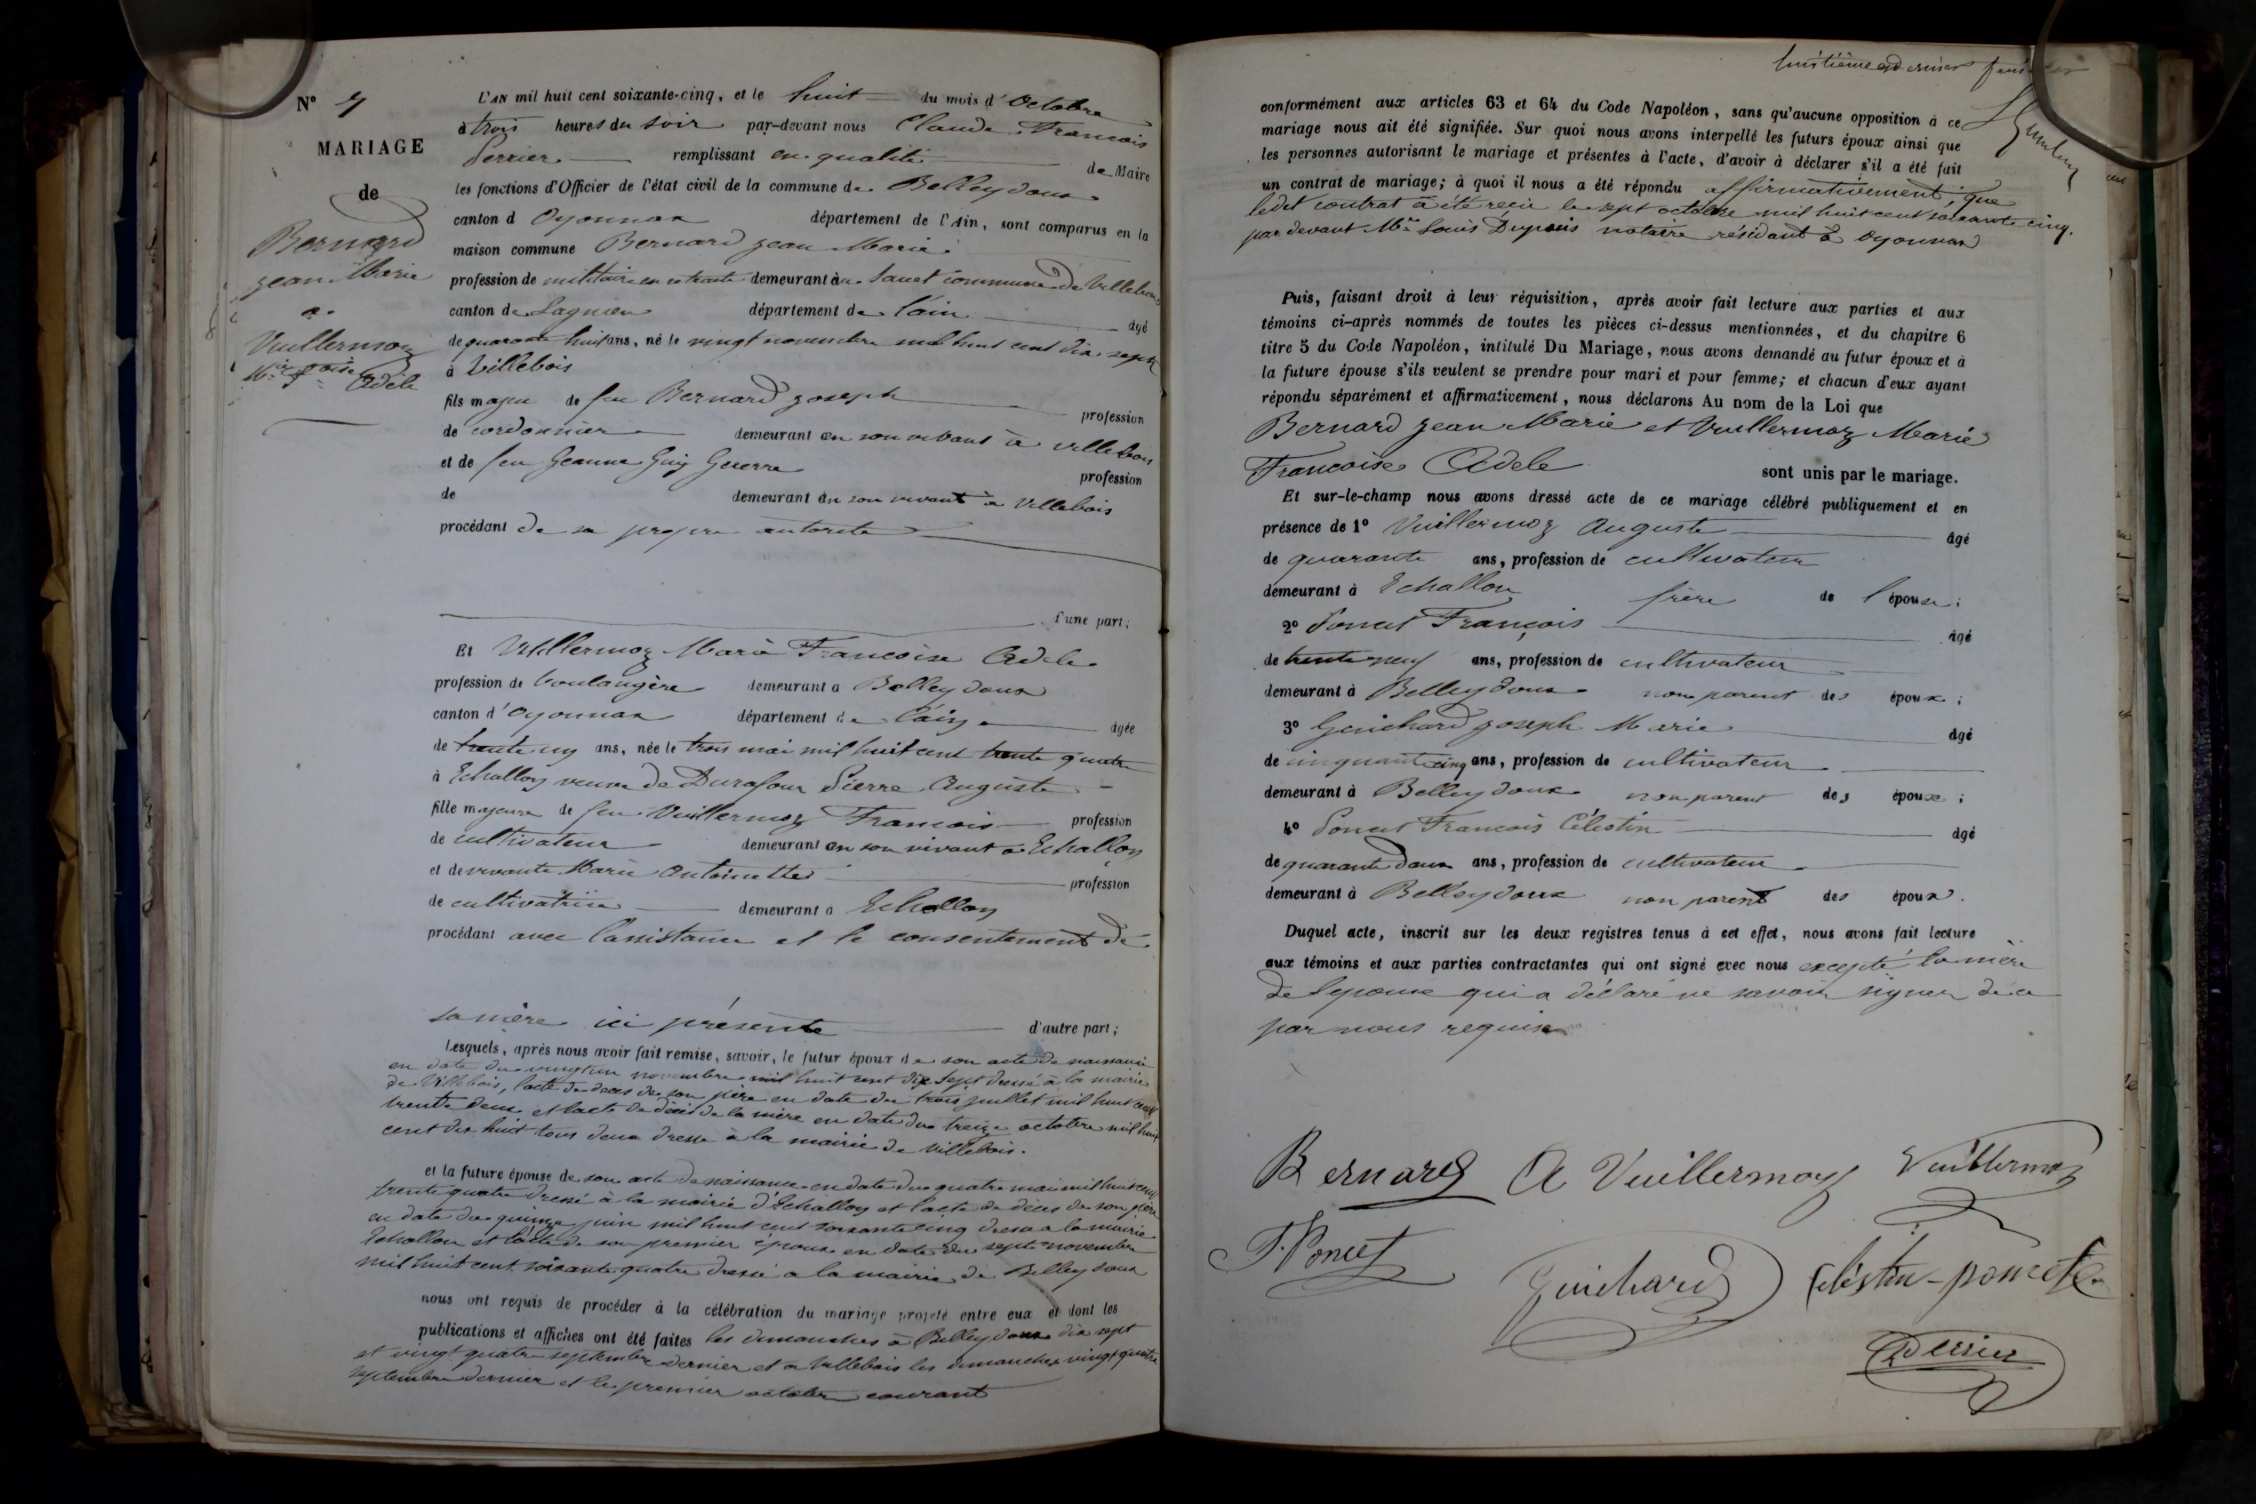 N° 7
MARIAGE
de
Bernard
jean Marie
a
Vuillermoz
Mie Foise Adèle
L'AN mil huit cent soixante-cinq, et le huit du mois d'Octobre
à trois heures du soir par-devant nous Claude François
Perrier remplissant en qualité de Maire
les fonctions d'Officier de l'état civil de la commune de Belleydoux
canton d Oyonnax département de l'Ain, sont comparus en la
maison commune Bernard jean Marie
profession de militaire en retraite demeurant à Sault commune de Villebois
canton de Lagnieu département de l'ain âgé
de quarante huit ans, né le vingt novembre mil huit cent dix sept
à Villebois
fils majeur de feu Bernard joseph profession
de cordonnier demeurant en son vivant à villebois
et de feu Jeanne Guy Guerre profession
de demeurant en son vivant à Villebois
procédant de sa propre autorité
d'une part;
Et Vuillermoz Marie Francoise Adele
profession de boulangère demeurant a Belleydoux
canton d'Oyonnax département de l'ain âgée
de trente un ans, née le trois mai mil huit cent trente quatre
à Echallon veuve de Durafour Pierre Auguste
fille majeure de feu Vuillermoz Francois profession
de cultivateur demeurant en son vivant à Echallon
et de vivante Marie Antoinette profession
de cultivatrice demeurant a Echallon
procédant avec l'assistance et le consentement de
sa mère ici présente d'autre part;
Lesquels, après nous avoir fait remise, savoir, le futur époux de son acte de naissance
en date du vingt un novembre mil huit cent dix sept dressé à la mairie
de Villebois, l'acte de deces de son père en date du trois juillet mil huit cent
trente deux et l'acte de décès de la mère en date du treize octobre mil huit
cent dix huit tous deux dressé à la mairie de Villebois.
et la future épouse de son acte de naissance en date du quatre mai mil huit cent
trente quatre dressé à la mairie d'Echallon et l'acte de décès de son père
en date du quinze juin mil huit cent soixante cinq dressé a la mairie
Echallon et l'acte de son premier époux en date du sept novembre
mil huit cent soixante quatre dressé a la mairie de Belleydoux
nous ont requis de procéder à la célébration du mariage projeté entre eux et dont les
publications et affiches ont été faites les dimanches à Belleydoux dix sept
et vingt quatre septembre dernier et a Villebois les dimanches vingt quatre
septembre dernier et le premier octobre courant
huitième et dernier feuillet
conformément aux articles 63 et 64 du Code Napoléon, sans qu'aucune opposition à ce
mariage nous ait été signifiée. Sur quoi nous avons interpellé les futurs époux ainsi que
les personnes autorisant le mariage et présentes à l'acte, d'avoir à déclarer s'il a été fait
un contrat de mariage; à quoi il nous a été répondu affirmativement, que
ledit contrat a été reçu le sept octobre mil huit cent soixante cinq.
par devant Me Louis Dupuis notaire résidant à Oyonnax
Puis, faisant droit à leur réquisition, après avoir fait lecture aux parties et aux
témoins ci-après nommés de toutes les pièces ci-dessus mentionnées, et du chapitre 6
titre 5 du Code Napoléon, intitulé Du Mariage, nous avons demandé au futur époux et à
la future épouse s'ils veulent se prendre pour mari et pour femme; et chacun d'eux ayant
répondu séparément et affirmativement, nous déclarons Au nom de la Loi que
Bernard jean Marie et Vuillermoz Marie
Francoise Adele sont unis par le mariage.
Et sur-le-champ nous avons dressé acte de ce mariage célébré publiquement et en
présence de 1° Vuillermoz Auguste âgé
de quarante ans, profession de cultivateur
demeurant à Echallon frère de l'épouse;
2° Poncet François âgé
de trente neuf ans, profession de cultivateur
demeurant à Belleydoux non parent des époux;
3° Guichard joseph Marie âgé
de cinquante cinq ans, profession de cultivateur
demeurant à Belleydoux non parent des époux;
4° Poncet Francois Célestin âgé
de quarante deux ans, profession de cultivateur
demeurant à Belleydoux non parent des époux.
Duquel acte, inscrit sur les deux registres tenus à cet effet, nous avons fait lecture
aux témoins et aux parties contractantes qui ont signé avec nous excepté la mère
de lepouse qui a déclaré ne savoir signer de ce
par nous requise
Bernard A Vuillermoz Vuillermoz
F. Poncet Guichard Célestin-poncet
Perrier